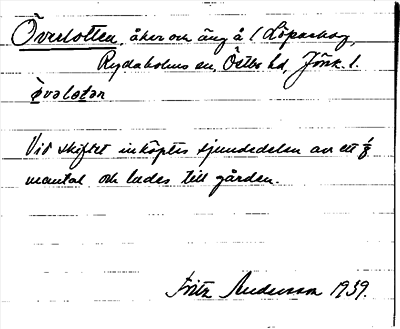 Överlotten, åker och äng å ( Löpaskog,
Rydaholms sn, Östbo hd, Jönk. l.
Övəlɷtən
Vid skiftet inköptes sjundedelen av ett 1/8
mantal och lades till gården.
Fritz Andersson 1939.